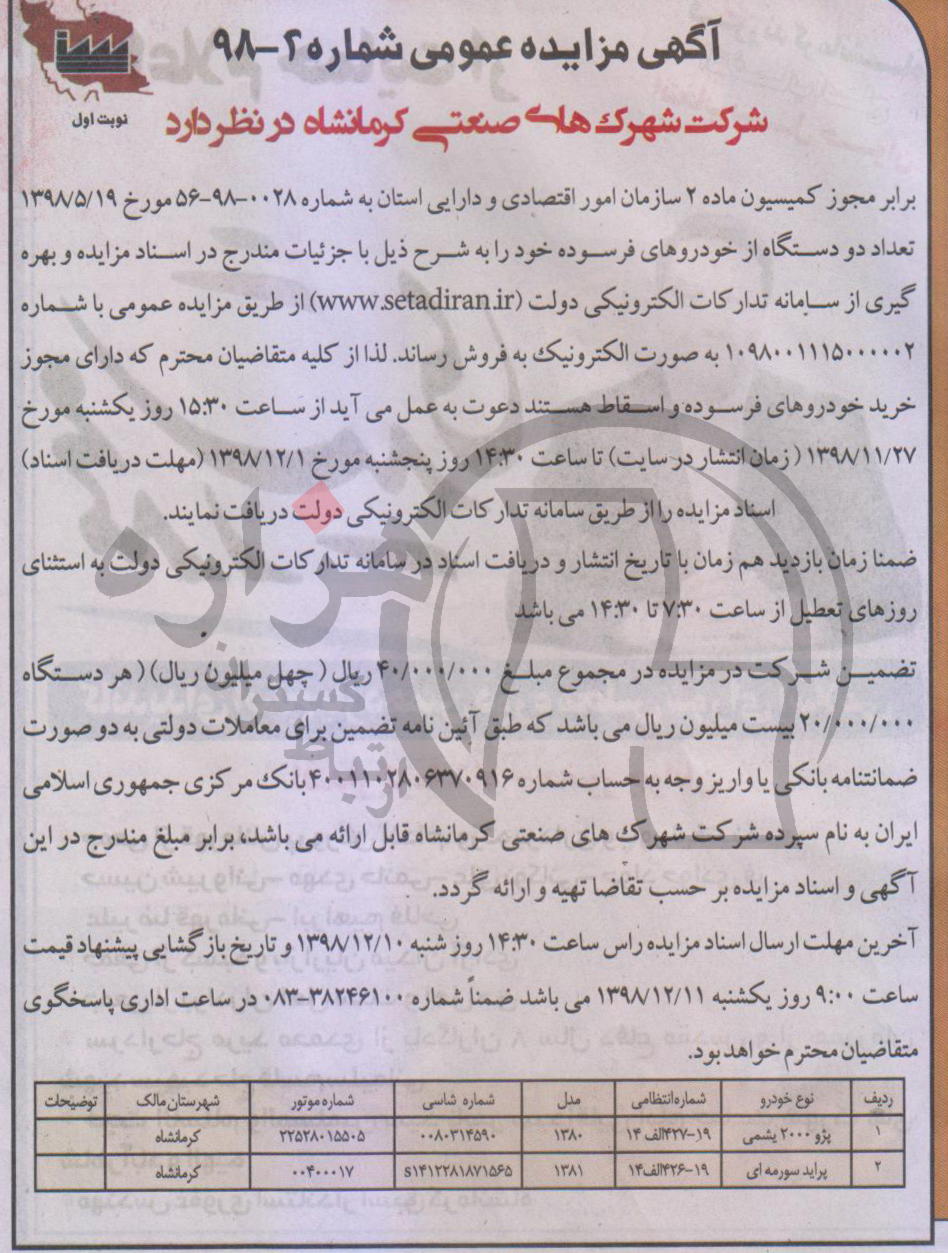 آگهی مزایده عمومی شماره ۲-۹۸
نوبت اول
شرکت شهرک های صنعتی کرمانشاه در نظر دارد
برابر مجوز کمیسیون ماده ۲ سازمان امور اقتصادی و دارایی استان به شماره ۰۰۲۸-۹۸-۵۶ مورخ ۱۳۹۸/۵/۱۹
تعداد دو دستگاه از خودروهای فرسوده خود را به شرح ذیل با جزئیات مندرج در اسناد مزایده و بهره
گیری از سامانه تدارکات الکترونیکی دولت (www.setadiran.ir) از طریق مزایده عمومی با شماره
۱۰۹۸۰۰۱۱۱۵۰۰۰۰۰۲ به صورت الکترونیک به فروش رساند. لذا از کلیه متقاضیان محترم که دارای مجوز
خرید خودروهای فرسوده و اسقاط هستند دعوت به عمل می آید از ساعت ۱۵:۳۰ روز یکشنبه مورخ
۱۳۹۸/۱۱/۲۷ (زمان انتشار در سایت) تا ساعت ۱۴:۳۰ روز پنجشنبه مورخ ۱۳۹۸/۱۲/۱ (مهلت دریافت اسناد)
اسناد مزایده را از طریق سامانه تدارکات الکترونیکی دولت دریافت نمایند.
ضمنا زمان بازدید هم زمان با تاریخ انتشار و دریافت اسناد در سامانه تدارکات الکترونیکی دولت به استثنای
روزهای تعطیل از ساعت ۷:۳۰ تا ۱۴:۳۰ می باشد
تضمین شرکت در مزایده در مجموع مبلغ ۴۰/۰۰۰/۰۰۰ ریال (چهل میلیون ریال) (هر دستگاه
۲۰/۰۰۰/۰۰۰ بیست میلیون ریال می باشد که طبق آئین نامه تضمین برای معاملات دولتی به دو صورت
ضمانتنامه بانکی یا واریز وجه به حساب شماره ۴۰۰۱۱۰۲۸۰۶۳۷۰۹۱۶ بانک مرکزی جمهوری اسلامی
ایران به نام سپرده شرکت شهرک های صنعتی کرمانشاه قابل ارائه می باشد، برابر مبلغ مندرج در این
آگهی و اسناد مزایده بر حسب تقاضا تهیه و ارائه گردد.
آخرین مهلت ارسال اسناد مزایده راس ساعت ۱۴:۳۰ روز شنبه ۱۳۹۸/۱۲/۱۰ و تاریخ بازگشایی پیشنهاد قیمت
ساعت ۹:۰۰ روز یکشنبه ۱۳۹۸/۱۲/۱۱ می باشد ضمناً شماره ۳۸۲۴۶۱۰۰-۰۸۳ در ساعت اداری پاسخگوی
متقاضیان محترم خواهد بود.
ردیف نوع خودرو شماره انتظامی مدل شماره شاسی شماره موتور شهرستان مالک توضیحات
۱ پژو ۲۰۰۰ یشمی ۱۹-۴۲۷الف۱۴ ۱۳۸۰ ۰۰۸۰۳۱۴۵۹۰ ۲۲۵۲۸۰۱۵۵۰۵ کرمانشاه
۲ پراید سورمه ای ۱۹-۴۲۶الف۱۴ ۱۳۸۱ s۱۴۱۲۲۸۱۸۷۱۵۶۵ ۰۰۴۰۰۰۱۷ کرمانشاه
هزاره
گسترش
ارتباط